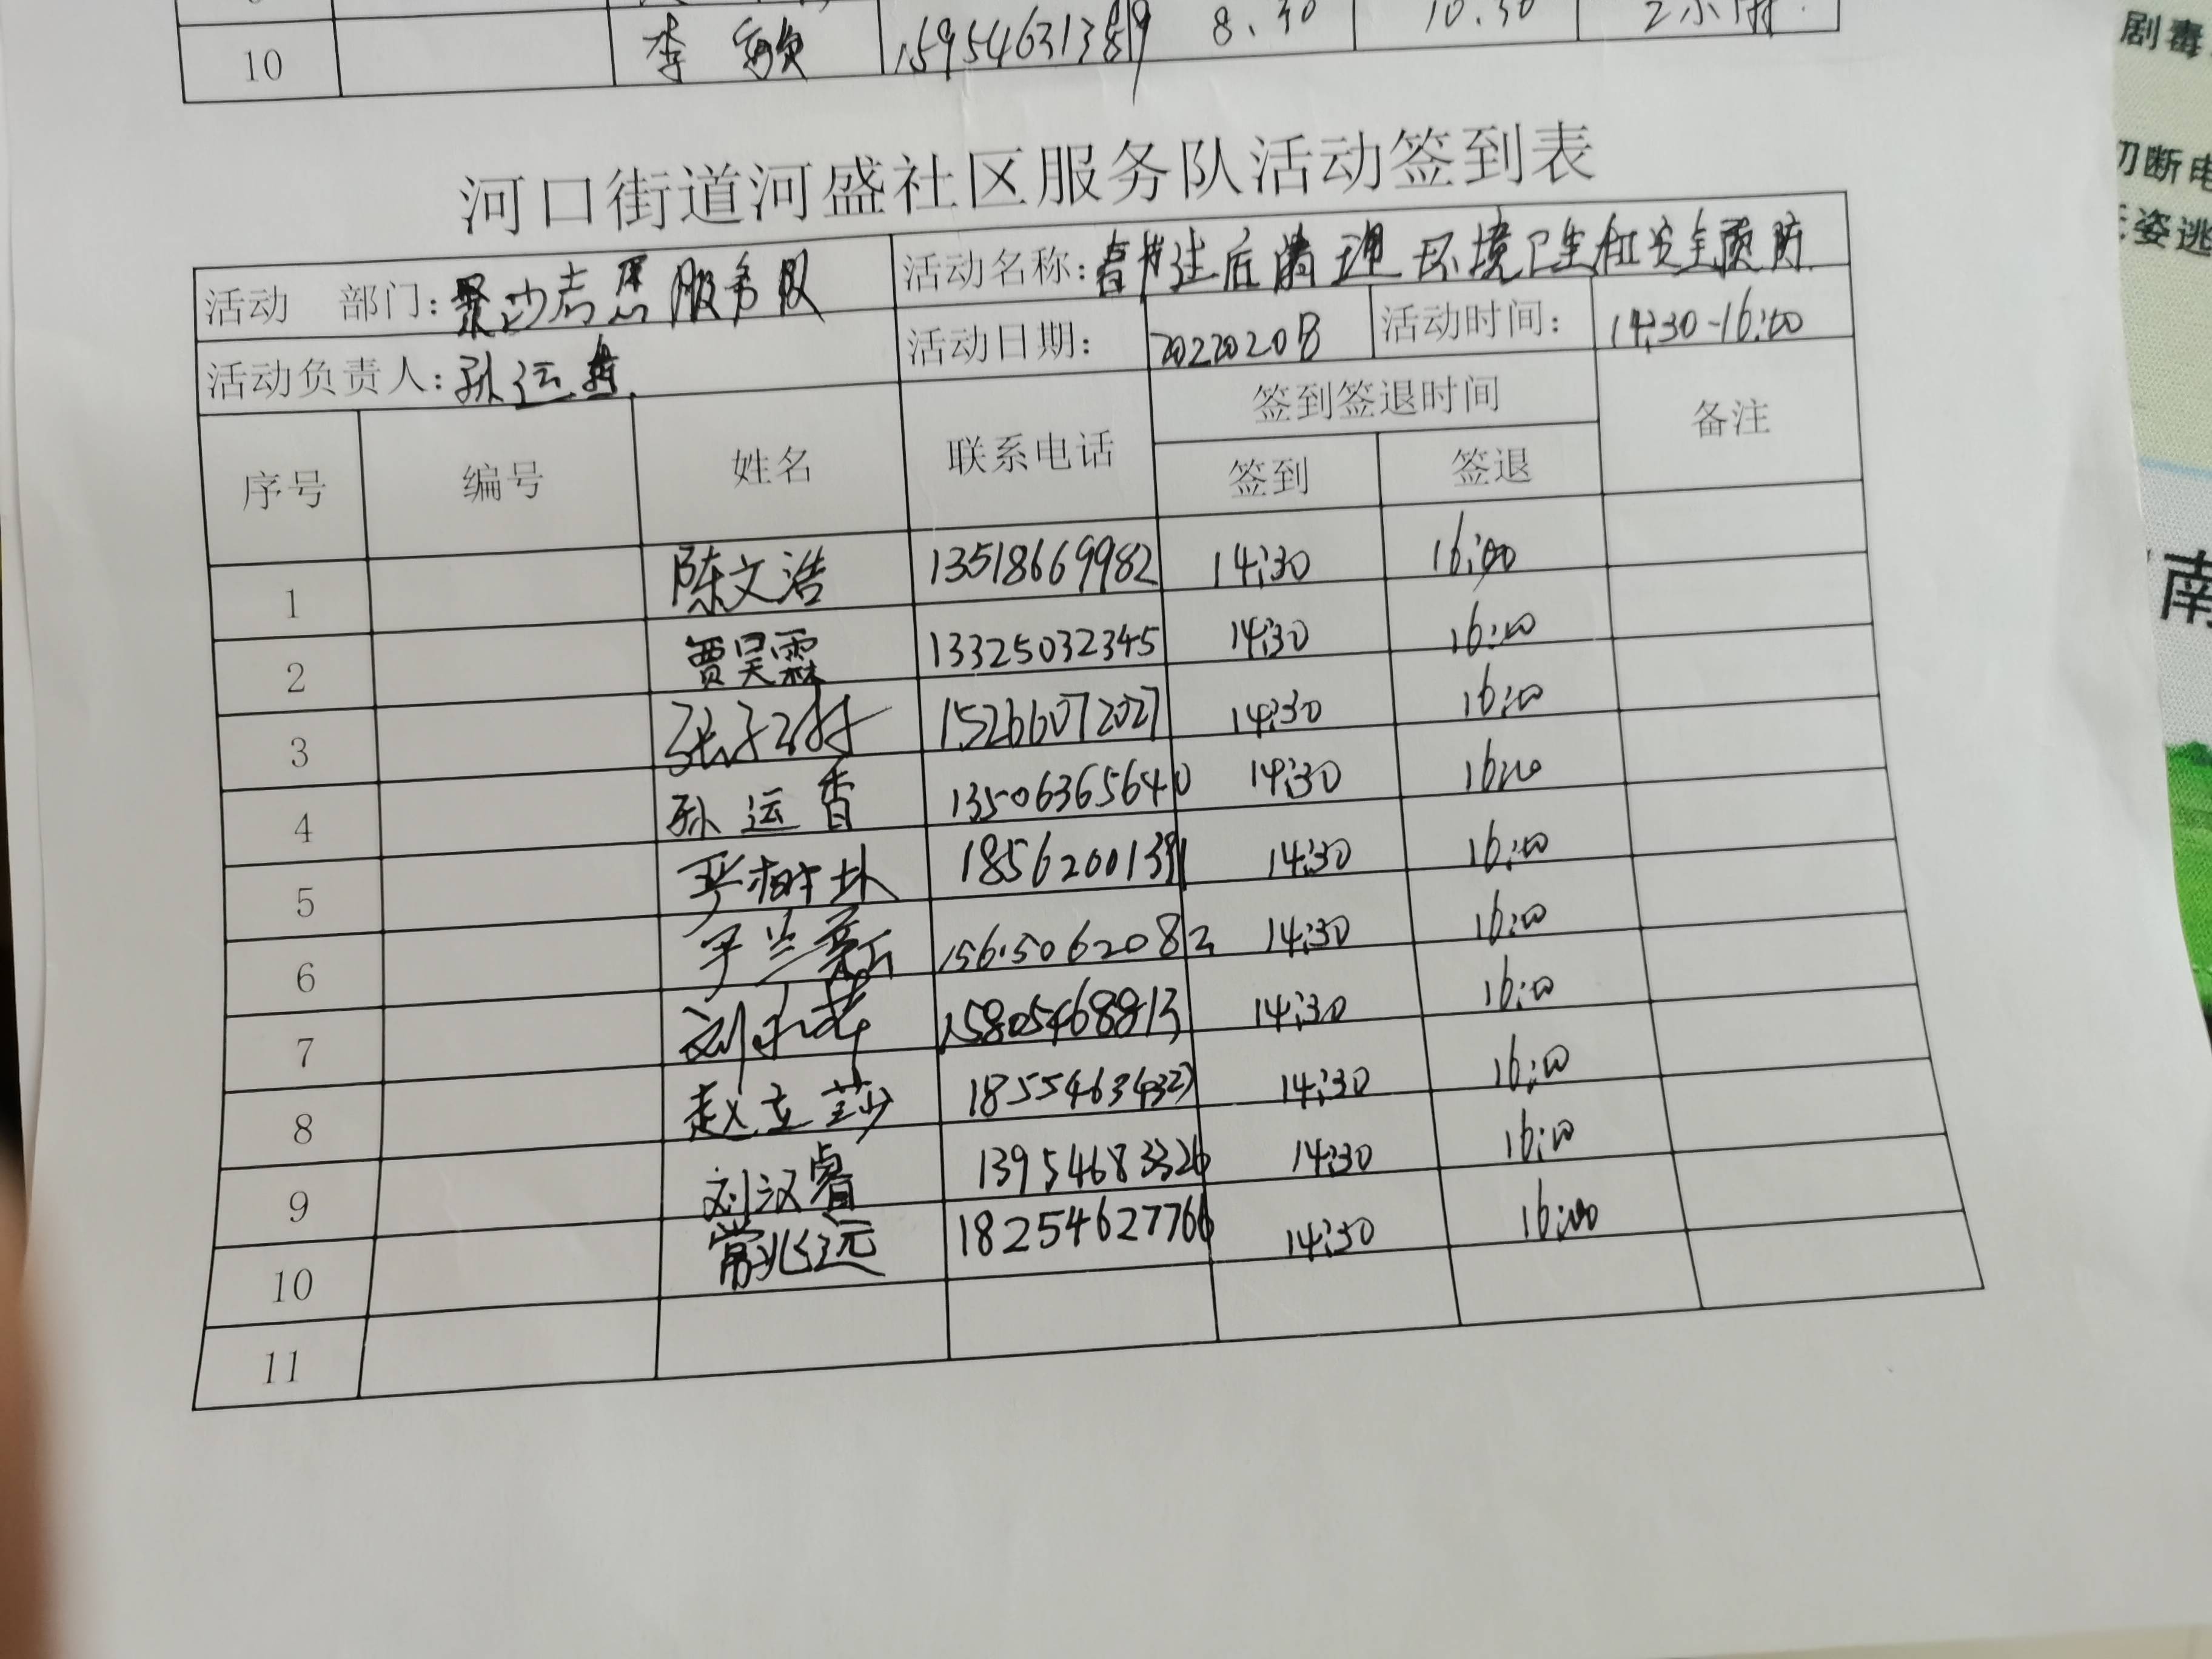 10 李敏 15954631389 8.30 10.30 2小时
剧毒
切断电
姿逃
南
河口街道河盛社区服务队活动签到表
活动 部门: 聚沙志愿服务队 活动名称: 春节过后清理环境卫生和安全预防
活动负责人: 孙运香 活动日期: 活动时间: 14:30-16:00
序号 编号 姓名 联系电话 签到签退时间 备注
签到 签退
1 陈文浩 13518669982 14:30 16:00
2 贾昊霖 13325032345 14:30 16:00
3 15266072027 14:30 16:00
4 孙运香 13506365640 14:30 16:00
5 18562001391 14:30 16:00
6 于兰新 15615062082 14:30 16:00
7 15805468813 14:30 16:00
8 赵立莎 14:30 16:00
9 刘汉睿 13954683326 14:30 16:00
10 常兆远 18254627766 14:30 16:00
11